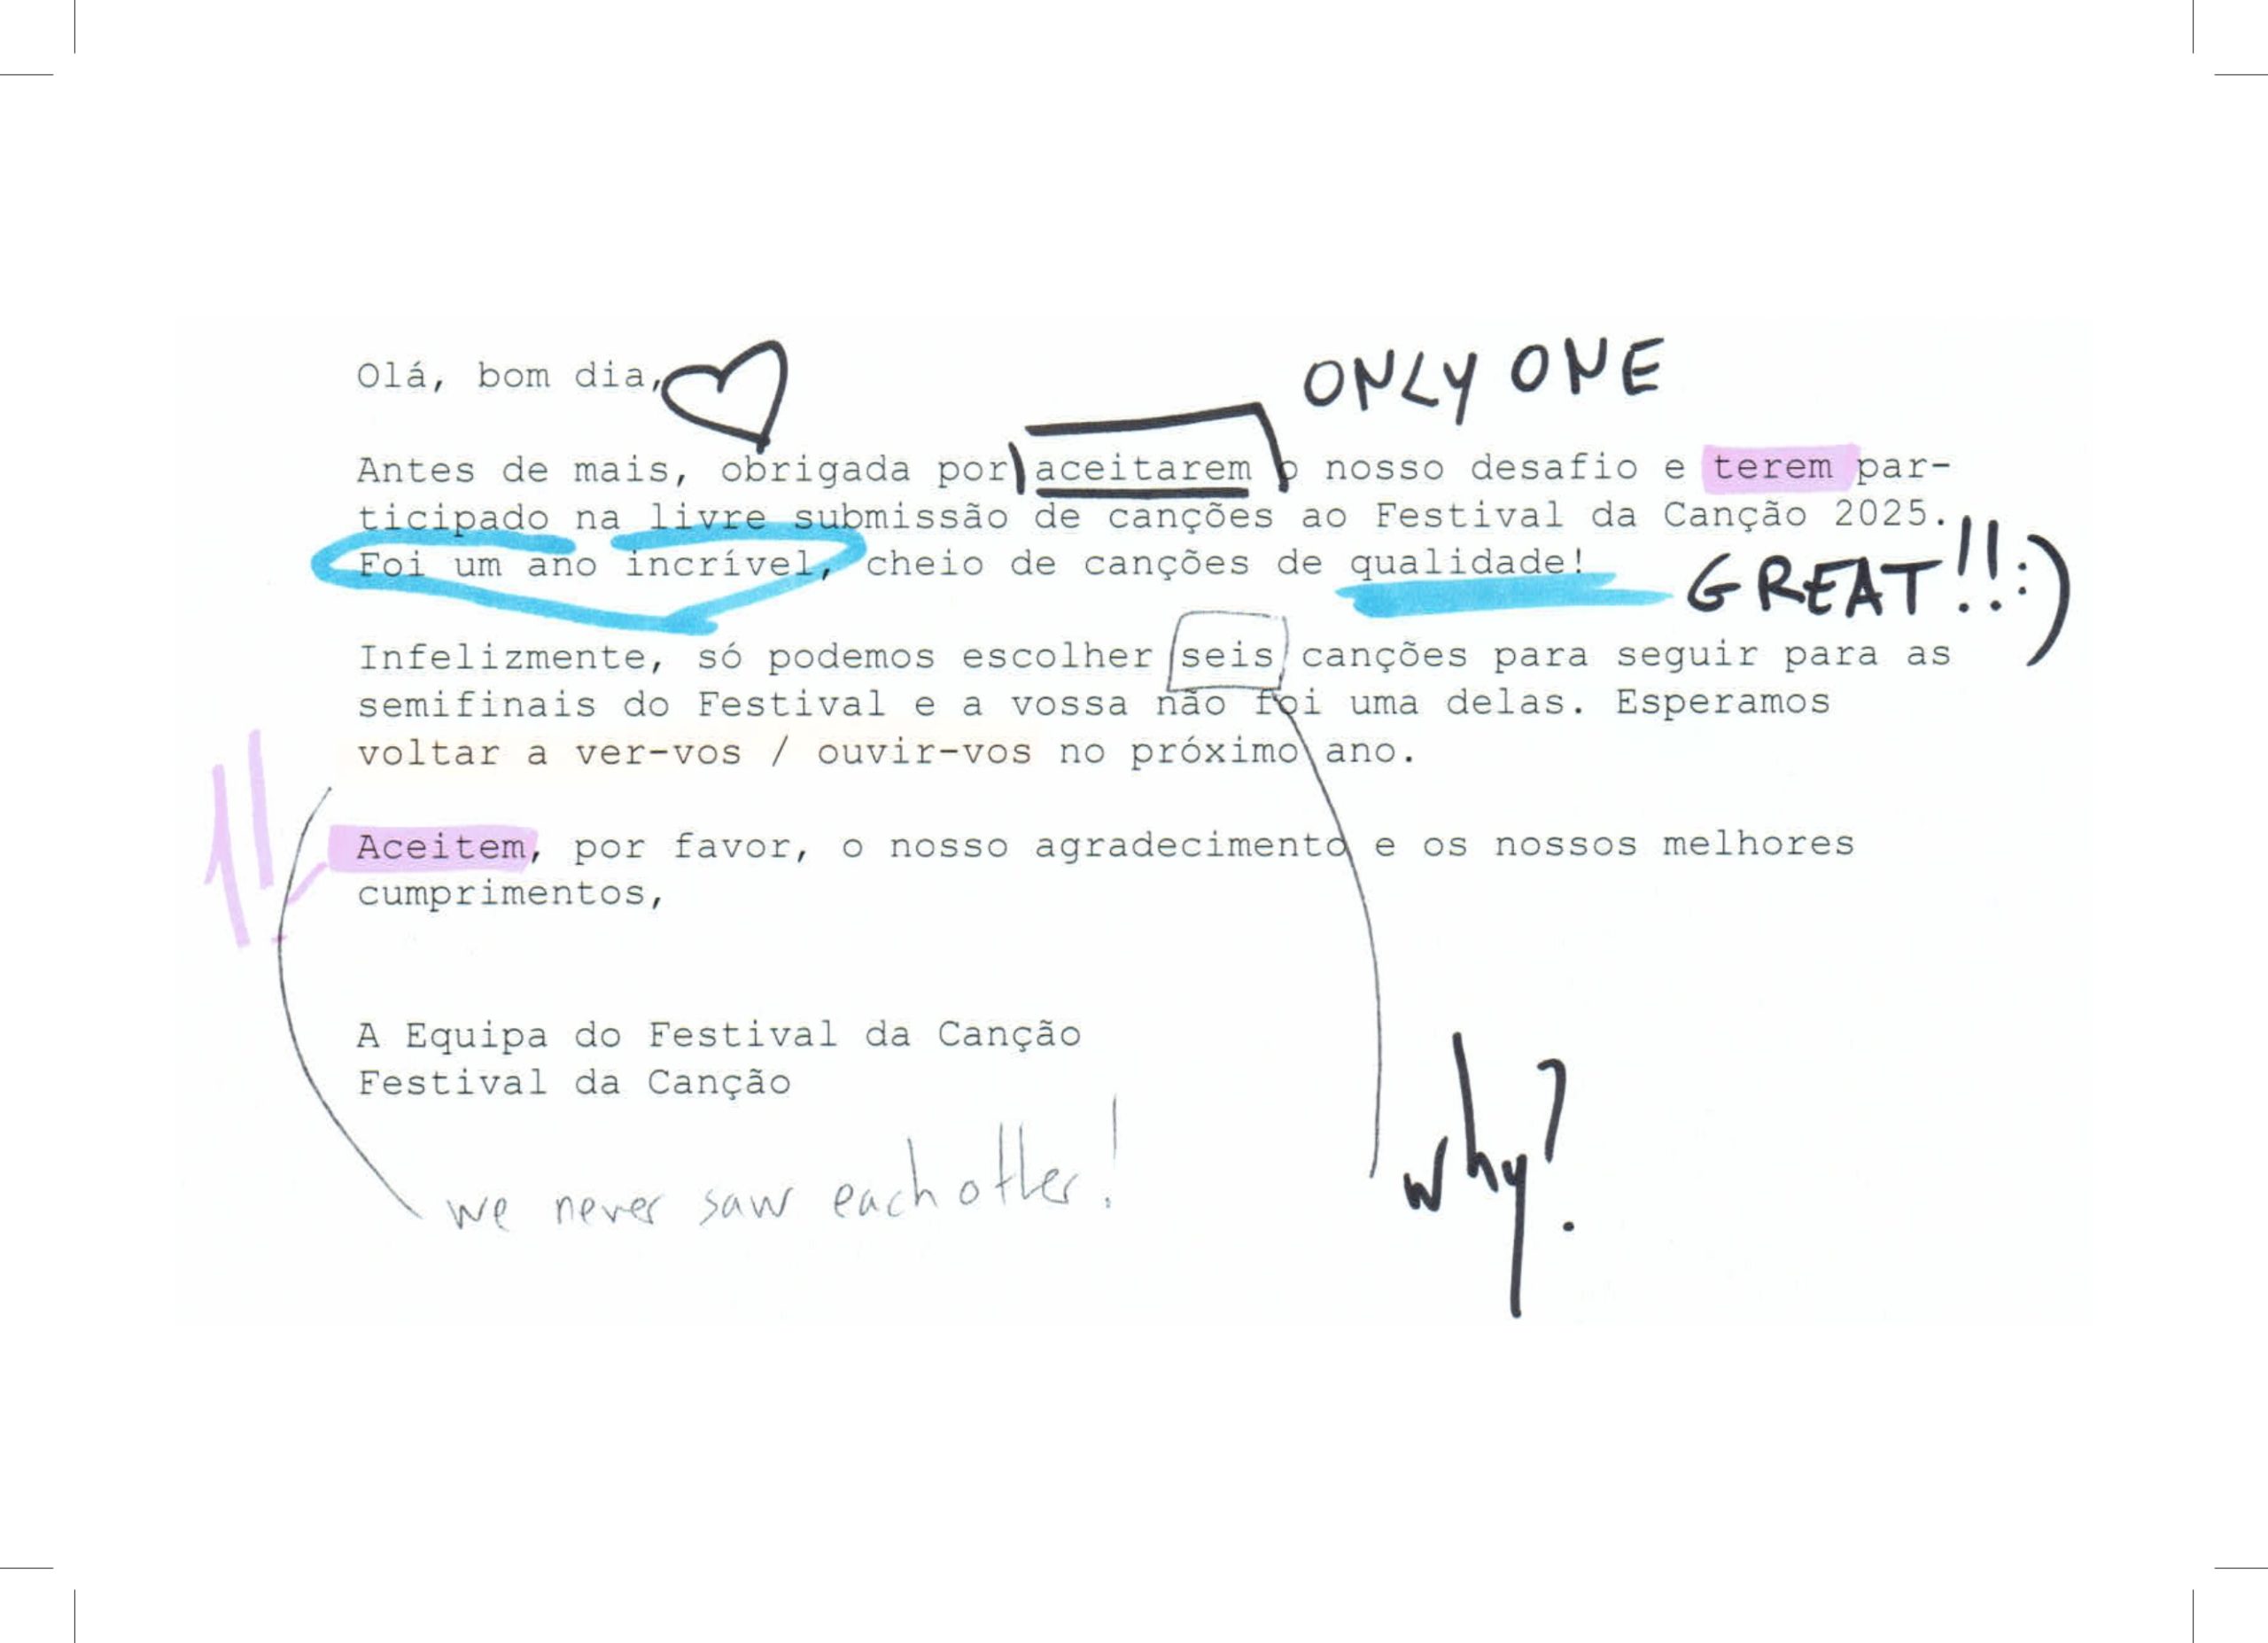 Olá, bom dia,
ONLY ONE
Antes de mais, obrigada por aceitarem o nosso desafio e terem par-
ticipado na livre submissão de canções ao Festival da Canção 2025.
Foi um ano incrível, cheio de canções de qualidade!
GREAT!!:)
Infelizmente, só podemos escolher seis canções para seguir para as
semifinais do Festival e a vossa não foi uma delas. Esperamos
voltar a ver-vos / ouvir-vos no próximo ano.
Aceitem, por favor, o nosso agradecimento e os nossos melhores
cumprimentos,
A Equipa do Festival da Canção
Festival da Canção
we never saw each other!
why?